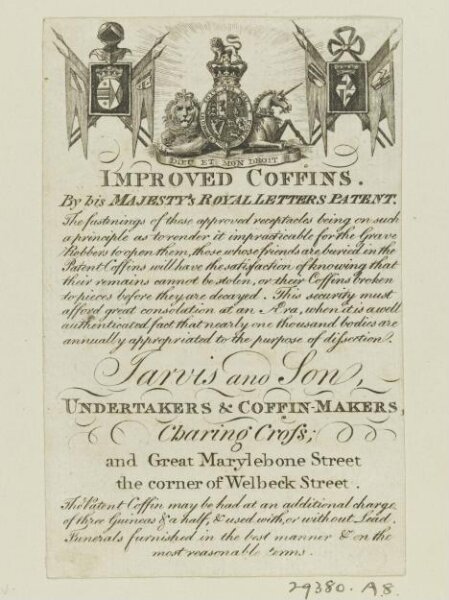 DIEU ET MON DROIT
IMPROVED COFFINS.
By his MAJESTY's ROYAL LETTERS PATENT.
The fastenings of these approved receptacles being on such
a principle as to render it impracticable for the Grave
Robbers to open them, those whose friends are buried in the
Patent Coffins will have the satisfaction of knowing that
their remains cannot be stolen, or their Coffins broken
to pieces before they are decayed. This security must
afford great consolation at an Æra, when it is a well
authenticated fact that nearly one thousand bodies are
annually appropriated to the purpose of dissection.
Jarvis and Son,
UNDERTAKERS & COFFIN-MAKERS,
Charing Croſs;
and Great Marylebone Street
the corner of Welbeck Street.
The Patent Coffin may be had at an additional charge
of three Guineas & a half, & used with, or without Lead.
Funerals furnished in the best manner & on the
most reasonable terms.
29380. A8.